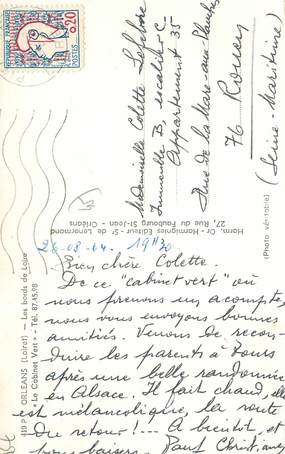 REPUBLIQUE FRANÇAISE
0,20
POSTES
Mademoiselle Colette
Immeuble B, escalier C
Appartement 35
Rue de la Mare-aux-Planches
76 Rouen
(Seine-Maritime)
Ham, Cl. - Hormignies Editeur - Sr de Lenormand
27, Rue du Faubourg St-Jean - Orléans
(Photo véritable)
419 P - ORLEANS (Loiret) — Les bords de Loire
« Le Cabinet Vert » - Tél. 87.45.98
26-08-64. 19H30
Bien chère Colette.
De ce "cabinet vert" où
nous prenons un acompte,
nous vous envoyons bonnes
amitiés. Venons de recon-
duire les parents à Tours
après une belle randonnée
en Alsace. Il fait chaud, elle
est mélancolique, la route
du retour !... A bientôt, et
bons baisers. Paul Christiane